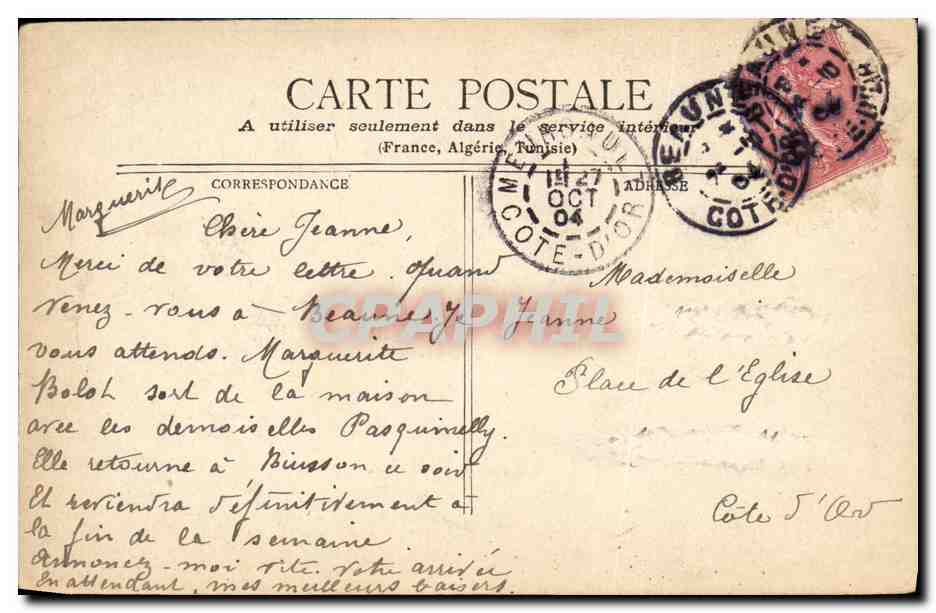 CARTE POSTALE
A utiliser seulement dans le service intérieur
(France, Algérie, Tunisie)
CORRESPONDANCE
ADRESSE
Marguerite
Chère Jeanne,
Merci de votre lettre. Quand
venez-vous à Beaune. Je
vous attends. Marguerite
Bolot sort de la maison
avec les demoiselles
Elle retourne à Buisson ce soir
Et reviendra définitivement à
la fin de la semaine
Annoncez-moi vite votre arrivée
En attendant, mes meilleurs baisers.
Mademoiselle
Jeanne
Place de l'Eglise
Côte d'Or
27
OCT
04
COTE-D'OR
BEAUNE
COTE-D'OR
BEAUNE
CPAPHIL